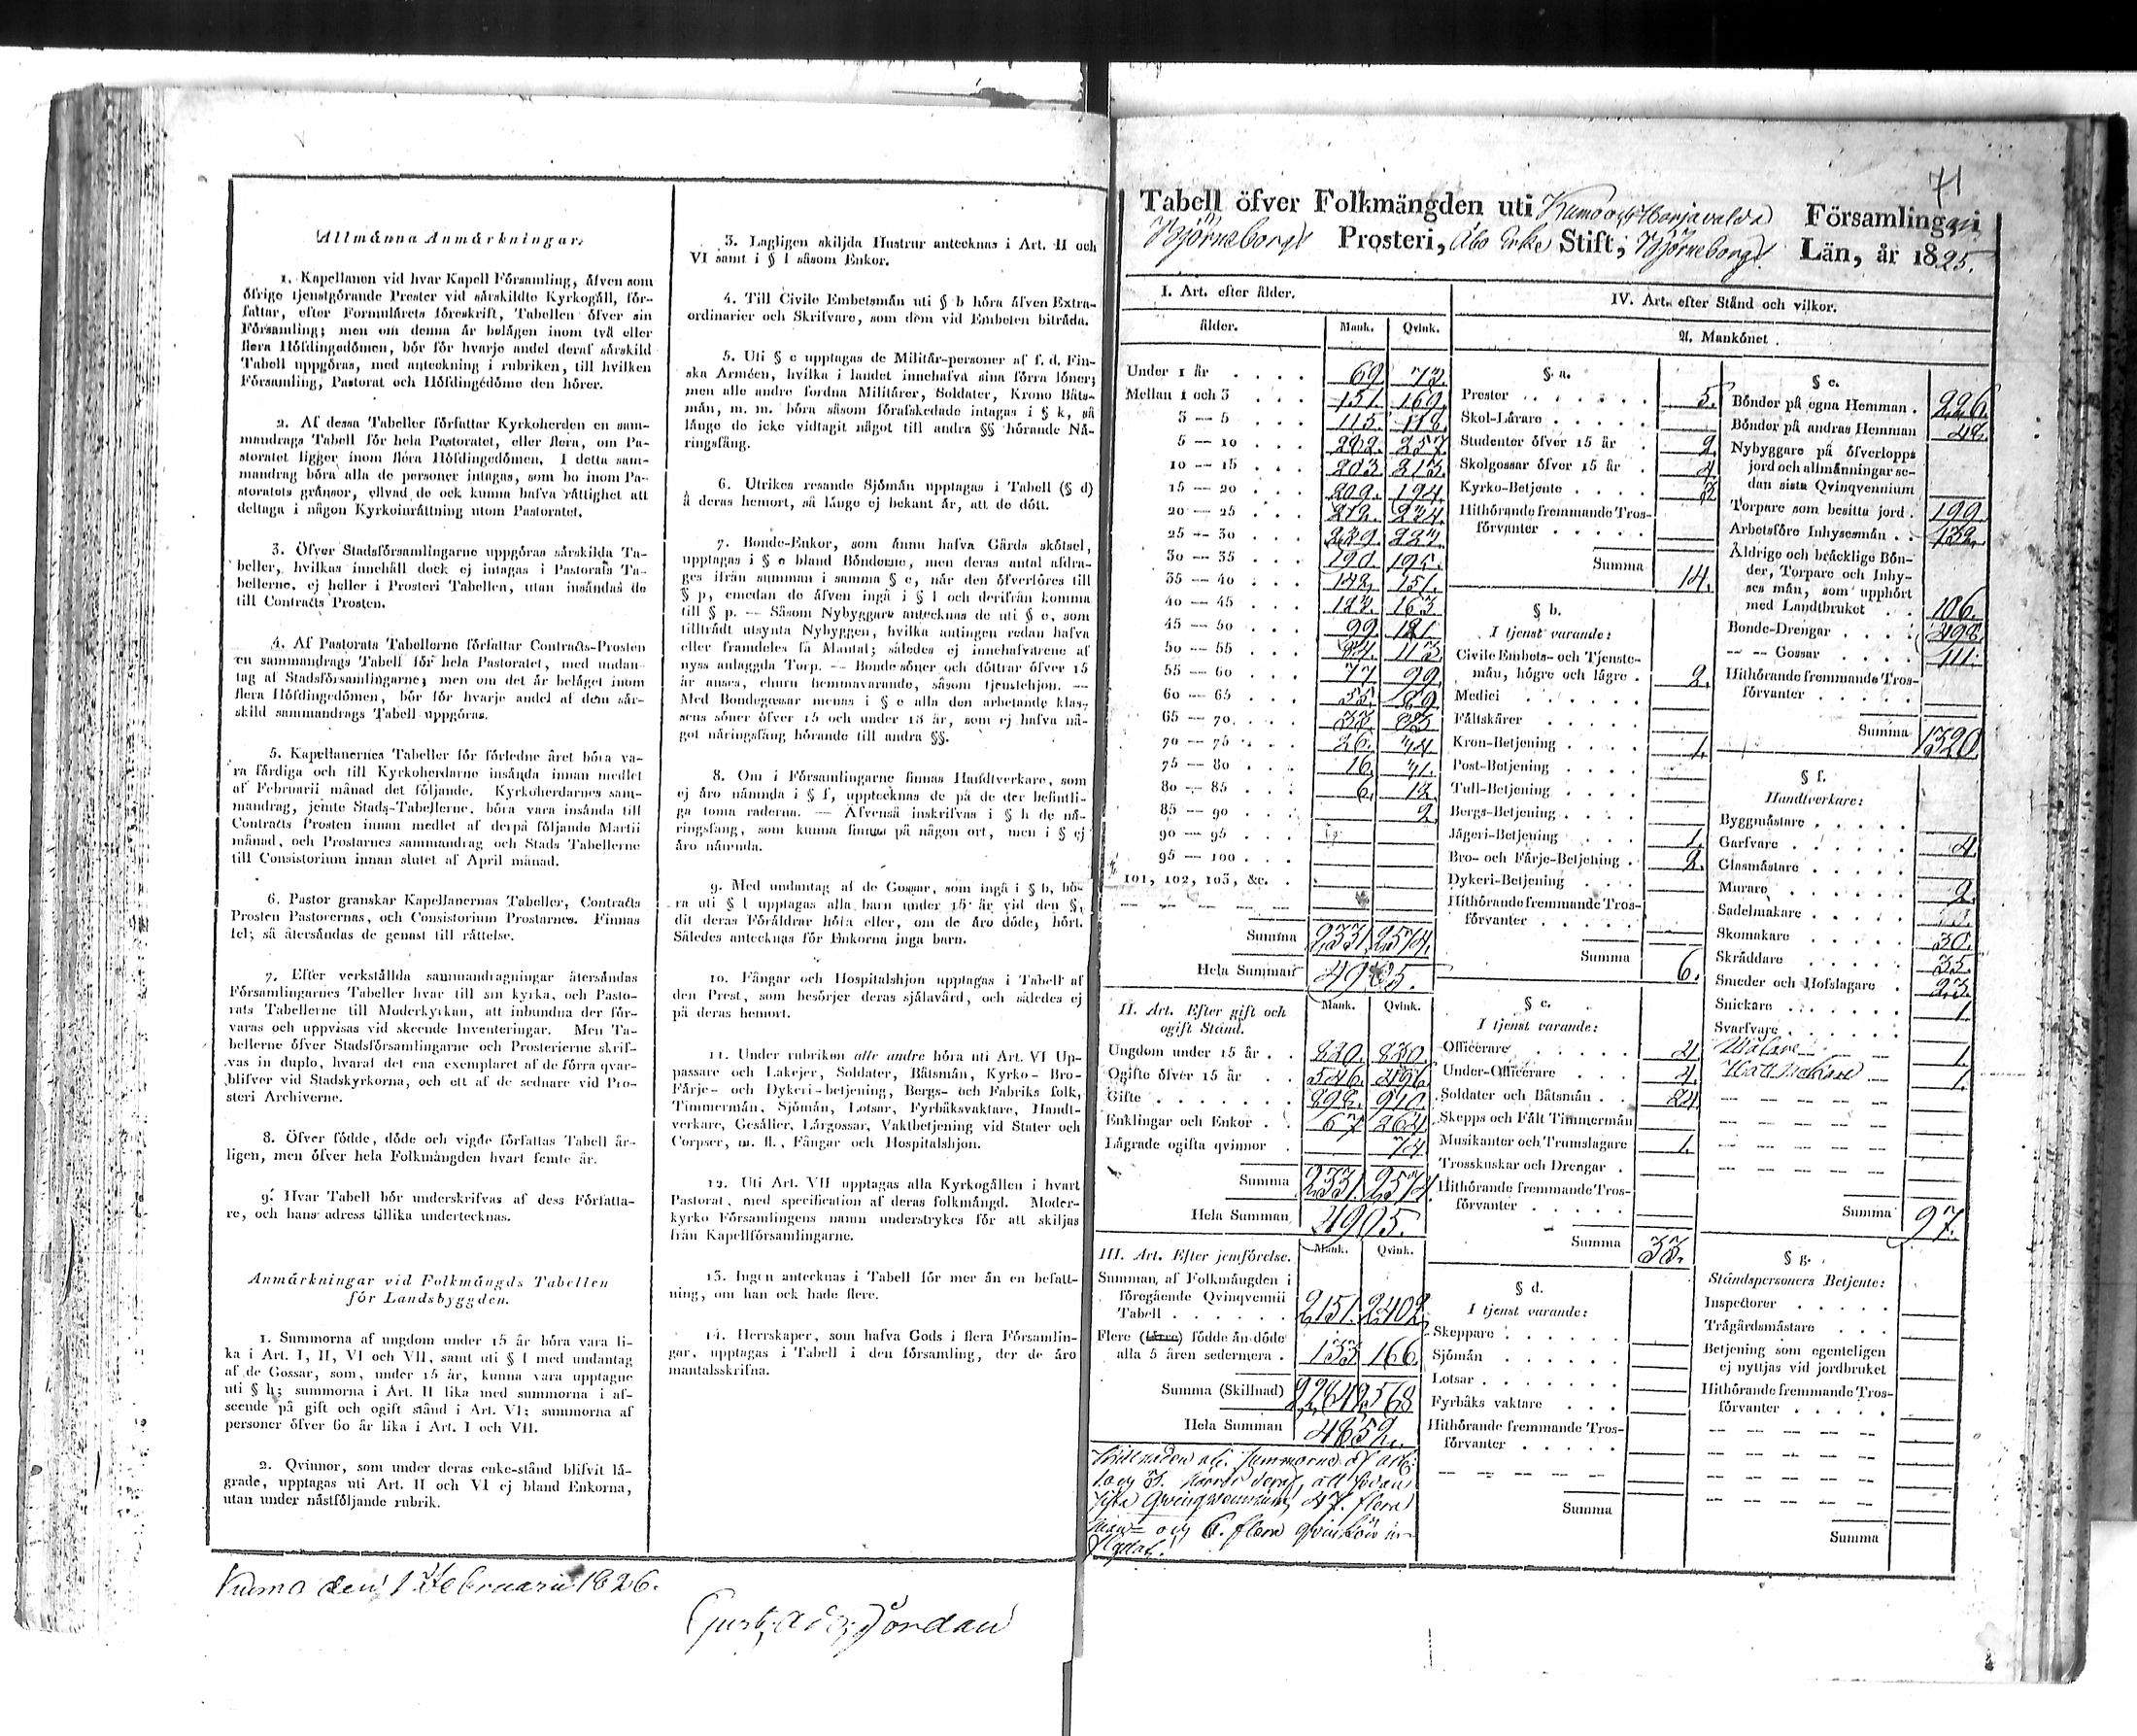 Allmänna Anmärkningar.
1. Kapellanen vid hvar Kapell Församling, äfven som
öfrige tjenstgörande Prester vid särskildte Kyrkogäll, för-
fattar, efter Formulärets föreskrift, Tabellen öfver sin
Församling; men om denna är belägen inom två eller
flera Höfdingedömen, bör för hvarje andel deraf särskild
Tabell uppgöras, med anteckning i rubriken, till hvilken
Församling, Pastorat och Höfdingedöme den hörer.
2. Af dessa Tabeller författar Kyrkoherden en sam-
mandrags Tabell för hela Pastoratet, eller flera, om Pa-
storatet ligger inom flera Höfdingedömen. I detta sam-
mandrag böra alla de personer intagas, som bo inom Pa-
storatets gränsor, ehvad de ock kunna hafva rättighet att
deltaga i någon Kyrkoinrättning utom Pastoratet.
3. Öfver Stadsförsamlingarne uppgöras särskilda Ta-
beller, hvilkas innehåll dock ej intagas i Pastorats Ta-
bellerne, ej heller i Prosteri Tabellen, utan insändas de
till Contracts Prosten.
4. Af Pastorats Tabellerne författar Contracts-Prosten
en sammandrags Tabell för hela Pastoratet, med undan-
tag af Stadsförsamlingarne; men om det är beläget inom
flera Höfdingedömen, bör för hvarje andel af dem sär-
skild sammandrags Tabell uppgöras.
5. Kapellanernes Tabeller för förledne året böra va-
ra färdiga och till Kyrkoherdarne insända innan medlet
af Februarii månad det följande. Kyrkoherdarnes sam-
mandrag, jemte Stads-Tabellerne, böra vara insända till
Contracts Prosten innan medlet af derpå följande Martii
månad, och Prostarnes sammandrag och Stads Tabellerne
till Consistorium innan slutet af April månad.
6. Pastor granskar Kapellanernas Tabeller, Contracts
Prosten Pastorernas, och Consistorium Prostarnes. Finnas
fel; så återsändas de genast till rättelse.
7. Efter verkställda sammandragningar återsändas
Församlingarnes Tabeller hvar till sin kyrka, och Pasto-
rats Tabellerne till Moderkyrkan, att inbundna der för-
varas och uppvisas vid skeende Inventeringar. Men Ta-
bellerne öfver Stadsförsamlingarne och Prosterierne skrif-
vas in duplo, hvaraf det ena exemplaret af de förra qvar-
blifver vid Stadskyrkorna, och ett af de sednare vid Pro-
steri Archiverne.
8. Öfver födde, döde och vigde författas Tabell år-
ligen, men öfver hela Folkmängden hvart femte år.
9. Hvar Tabell bör underskrifvas af dess Författa-
re, och hans adress tillika undertecknas.
Anmärkningar vid Folkmängds Tabellen
för Landsbyggden.
1. Summorna af ungdom under 15 år böra vara li-
ka i Art. I, II, VI och VII, samt uti § l med undantag
af de Gossar, som, under 15 år, kunna vara upptagne
uti § h; summorna i Art. II lika med summorna i af-
seende på gift och ogift stånd i Art. VI; summorna af
personer öfver 60 år lika i Art. I och VII.
2. Qvinnor, som under deras enke-stånd blifvit lä-
grade, upptagas uti Art. II och VI ej bland Enkorna,
utan under nästföljande rubrik.
Kumo den 1 Februarii 1826.
3. Lagligen skiljda Hustrur antecknas i Art. II och
VI samt i § l såsom Enkor.
4. Till Civile Embetsmän uti § b höra äfven Extra-
ordinarier och Skrifvare, som dem vid Embeten biträda.
5. Uti § c upptagas de Militär-personer af f. d. Fin-
ska Arméen, hvilka i landet innehafva sina förra löner;
men alle andre fordna Militärer, Soldater, Krono Båts-
män, m. m. böra såsom förafskedade intagas i § k, så
länge de icke vidtagit något till andra §§ hörande Nä-
ringsfång.
6. Utrikes resande Sjömän upptagas i Tabell (§ d)
å deras hemort, så länge ej bekant är, att de dött.
7. Bonde-Enkor, som ännu hafva Gårds skötsel,
upptagas i § e bland Bönderne, men deras antal afdra-
ges ifrån summan i samma § e, når den öfverföres till
§ p, emedan de äfven ingå i § l och derifrån komma
till § p. — Såsom Nybyggare antecknas de uti § e, som
tillträdt utsynta Nybyggen, hvilka antingen redan hafva
eller framdeles få Mantal; således ej innehafvarene af
nyss anlaggda Torp. — Bondesöner och döttrar öfver 15
år anses, ehuru hemmavarande, såsom tjenstehjon. —
Med Bondegossar menas i § e alla den arbetande klas-
sens söner öfver 15 och under 18 år, som ej hafva nå-
got näringsfång hörande till andra §§.
8. Om i Församlingarne finnas Handtverkare, som
ej äro nämnda i § f, upptecknas de på de der befintli-
ga toma raderna. — Äfvenså inskrifvas i § h de nä-
ringsfång, som kunna finnas på någon ort, men i § ej
äro nämnda.
9. Med undantag af de Gossar, som ingå i § h, bö-
ra uti § l upptagas alla barn under 15 år vid den §,
dit deras Föräldrar höra eller, om de äro döde, hört.
Således antecknas för Enkorna inga barn.
10. Fångar och Hospitalshjon upptagas i Tabell af
den Prest, som besörjer deras själavård, och således ej
på deras hemort.
11. Under rubriken alle andre böra uti Art. VI Up-
passare och Lakejer, Soldater, Båtsmän, Kyrko- Bro-
Färje- och Dykeri-betjening, Bergs- och Fabriks folk,
Timmermän, Sjömän, Lotsar, Fyrbåksvaktare, Handt-
verkare, Gesäller, Lärgossar, Vaktbetjening vid Stater och
Corpser, m. fl., Fångar och Hospitalshjon.
12. Uti Art. VII upptagas alla Kyrkogällen i hvart
Pastorat, med specification af deras folkmängd. Moder-
kyrko Församlingens namn understrykes för att skiljas
från Kapellförsamlingarne.
13. Ingen antecknas i Tabell för mer än en befatt-
ning, om han ock hade flere.
14. Herrskaper, som hafva Gods i flera Församlin-
gar, upptagas i Tabell i den församling, der de äro
mantalsskrifna.
71
Tabell öfver Folkmängden uti Kumo och Harjavalda Församlingari
Björneborgs Prosteri, Åbo Erke Stift, Björneborgs Län, år 1825.
I. Art. efter ålder.
ålder. Mank. Qvink.
Under 1 år 69. 73.
Mellan 1 och 3 151. 169.
3 — 5 115. 118.
5 — 10 282. 257.
10 — 15 203. 213.
15 — 20 209. 194.
20 — 25 272. 234.
25 — 30 229. 227.
30 — 35 190. 195.
35 — 40 142. 151.
40 — 45 123. 163
45 — 50 99 121.
50 — 55 84. 113.
55 — 60 77 99.
60 — 65 55. 89.
65 — 70 33. 83
70 — 75 26. 44
75 — 80 16.
80 — 85 6. 12.
85 — 90 2.
90 — 95
95 — 100
101, 102, 103, &c.
Summa 2331 2574.
Hela Summan 4905.
II. Art. Efter gift och
ogift Stånd.
Mank. Qvink.
Ungdom under 15 år 820. 830.
Ogifte öfver 15 år 546. 496.
Gifte 898. 910.
Enklingar och Enkor 67 264.
Lägrade ogifta qvinnor 74.
Summa 2331. 2574.
Hela Summan 4905.
III. Art. Efter jemförelse. Mank. Qvink.
Summan, af Folkmängden i
föregående Qvinqvennii
Tabell 2151. 2402
Flere (färre) födde än döde
alla 5 åren sedermera 133 166
Summa (Skillnad) 2284 2568
Hela Summan 4852.
Skilnaden uti summorne af art:
1 och 3. deraf, att sedan
sista Qvinqvennium, 47. flera
man= och 6. flera qvinkön in=
flyttat.
IV. Art. efter Stånd och vilkor.
A. Mankönet.
§ a.
Prester 5.
Skol-Lärare
Studenter öfver 15 år 2.
Skolgossar öfver 15 år 4
Kyrko-Betjente 3
Hithörande fremmande Tros-
förvanter
Summa 14.
§ b.
I tjenst varande:
Civile Embets- och Tjenste-
män, högre och lägre 2.
Medici
Fältskärer
Kron-Betjening 1.
Post-Betjening
Tull-Betjening
Bergs-Betjening
Jägeri-Betjening 1.
Bro- och Färje-Betjening 2.
Dykeri-Betjening
Hithörande fremmande Tros-
förvanter
Summa 6.
§ c.
I tjenst varande:
Officerare 4
Under-Officerare 4.
Soldater och Båtsmän 24.
Skepps och Fält Timmermän
Musikanter och Trumslagare 1.
Trosskuskar och Drengar
Hithörande fremmande Tros-
förvanter
Summa 33.
§ d.
I tjenst varande:
Skeppare
Sjömän
Lotsar
Fyrbåks vaktare
Hithörande fremmande Tros-
förvanter
Summa
§ e.
Bönder på egna Hemman 226.
Bönder på andras Hemman 48.
Nybyggare på öfverlopps
jord och allmänningar se-
dan sista Qvinqvennium
Torpare som besitta jord 199.
Arbetsföre Inhysesmän 132.
Äldrige och bräcklige Bön-
der, Torpare och Inhy-
ses män, som upphört
med Landtbruket 106.
Bonde-Drengar 498.
— — Gossar 111.
Hithörande fremmande Tros-
förvanter
Summa 1320.
§ f.
Handtverkare:
Byggmästare
Garfvare 4.
Glasmästare
Murare 2.
Sadelmakare
Skomakare 30.
Skräddare 35
Smeder och Hofslagare 23.
Snickare 1
Svarfvare
Målare 1.
Hattmakare 1.
Summa 97.
§ g.
Ståndspersoners Betjente:
Inspectorer
Trägårdsmästare
Betjening som egenteligen
ej nyttjas vid jordbruket
Hithörande fremmande Tros-
förvanter
Summa